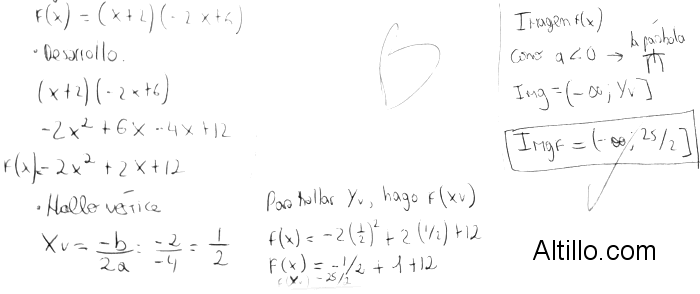 F(x) = (x+2)(-2x+6)
• Desarrollo.
(x+2)(-2x+6)
-2x² + 6x - 4x + 12
F(x) = -2x² + 2x + 12
• Hallo vértice
Xv = -b/2a = -2/-4 = 1/2
Para hallar Yv, hago F(xv)
f(x) = -2(1/2)² + 2(1/2) + 12
F(x) = -1/2 + 1 + 12
6
Imagen f(x)
como a<0 → la parábola
Img = (-∞; Yv]
Imgf = (-∞; 25/2]
Altillo.com